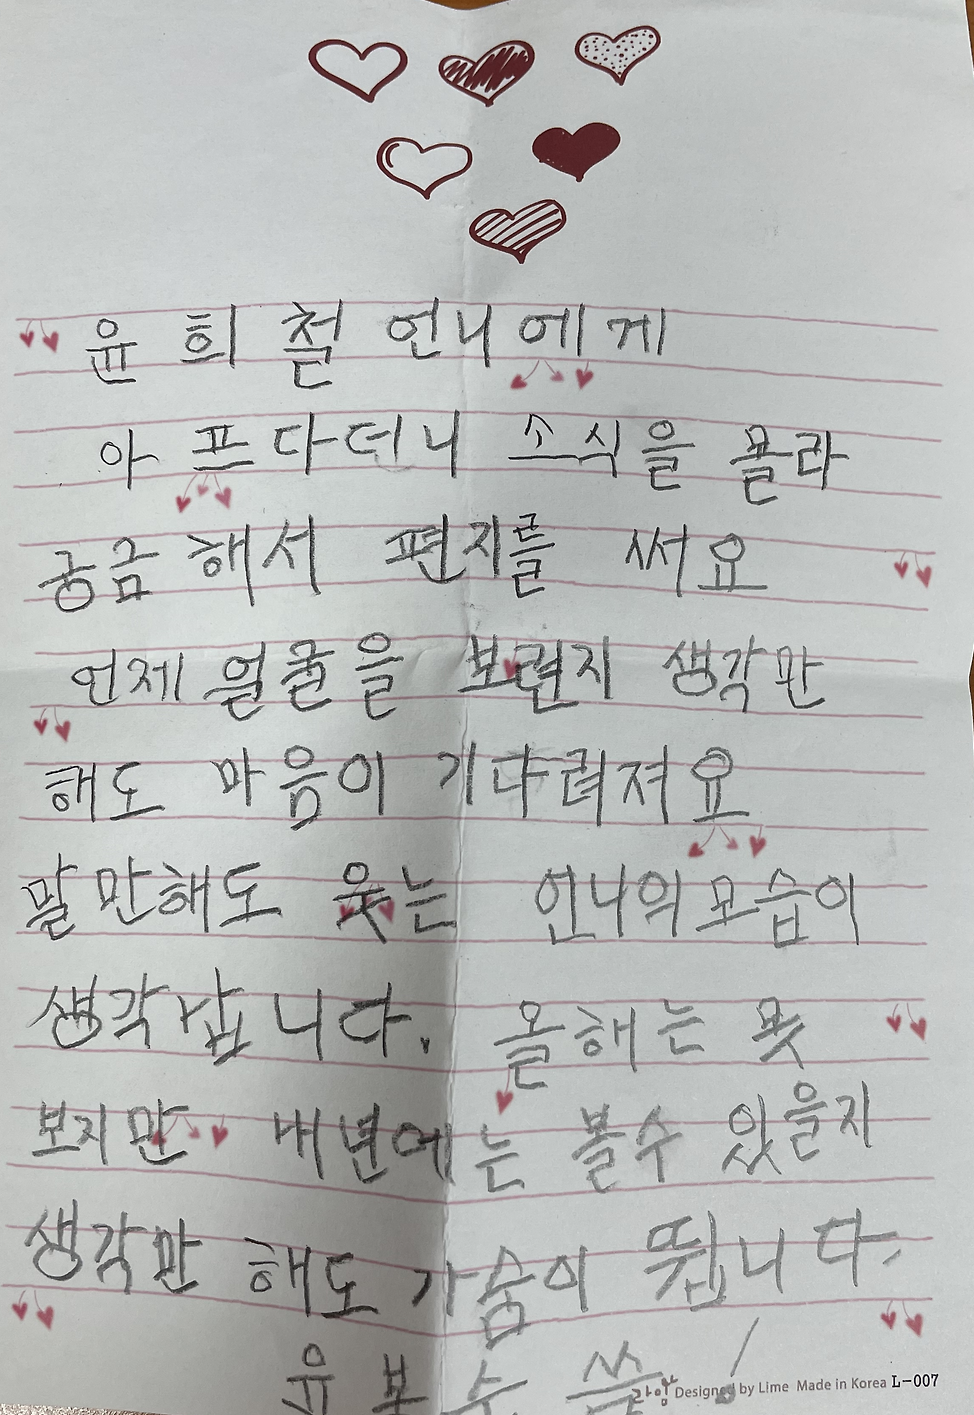 윤희철 언니에게
아프다더니 소식을 몰라
궁금해서 편지를 써요
언제 얼굴을 보련지 생각만
해도 마음이 기다려져요
말만해도 웃는 언니의모습이
생각납니다. 올해는 못
보지만 내년에는 볼수 있을지
생각만 해도 가슴이 뜁니다.
윤보수 씀!
라임 Designed by Lime Made in Korea L-007